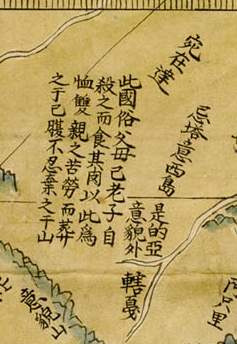 宛在達
忌塔意西島
此國俗父毋已老子自
殺之而食其肉以此為
恤雙親之苦勞而葬
之于已腹不忍棄之于山
是的亞
意貌外
轄戞
意貌山